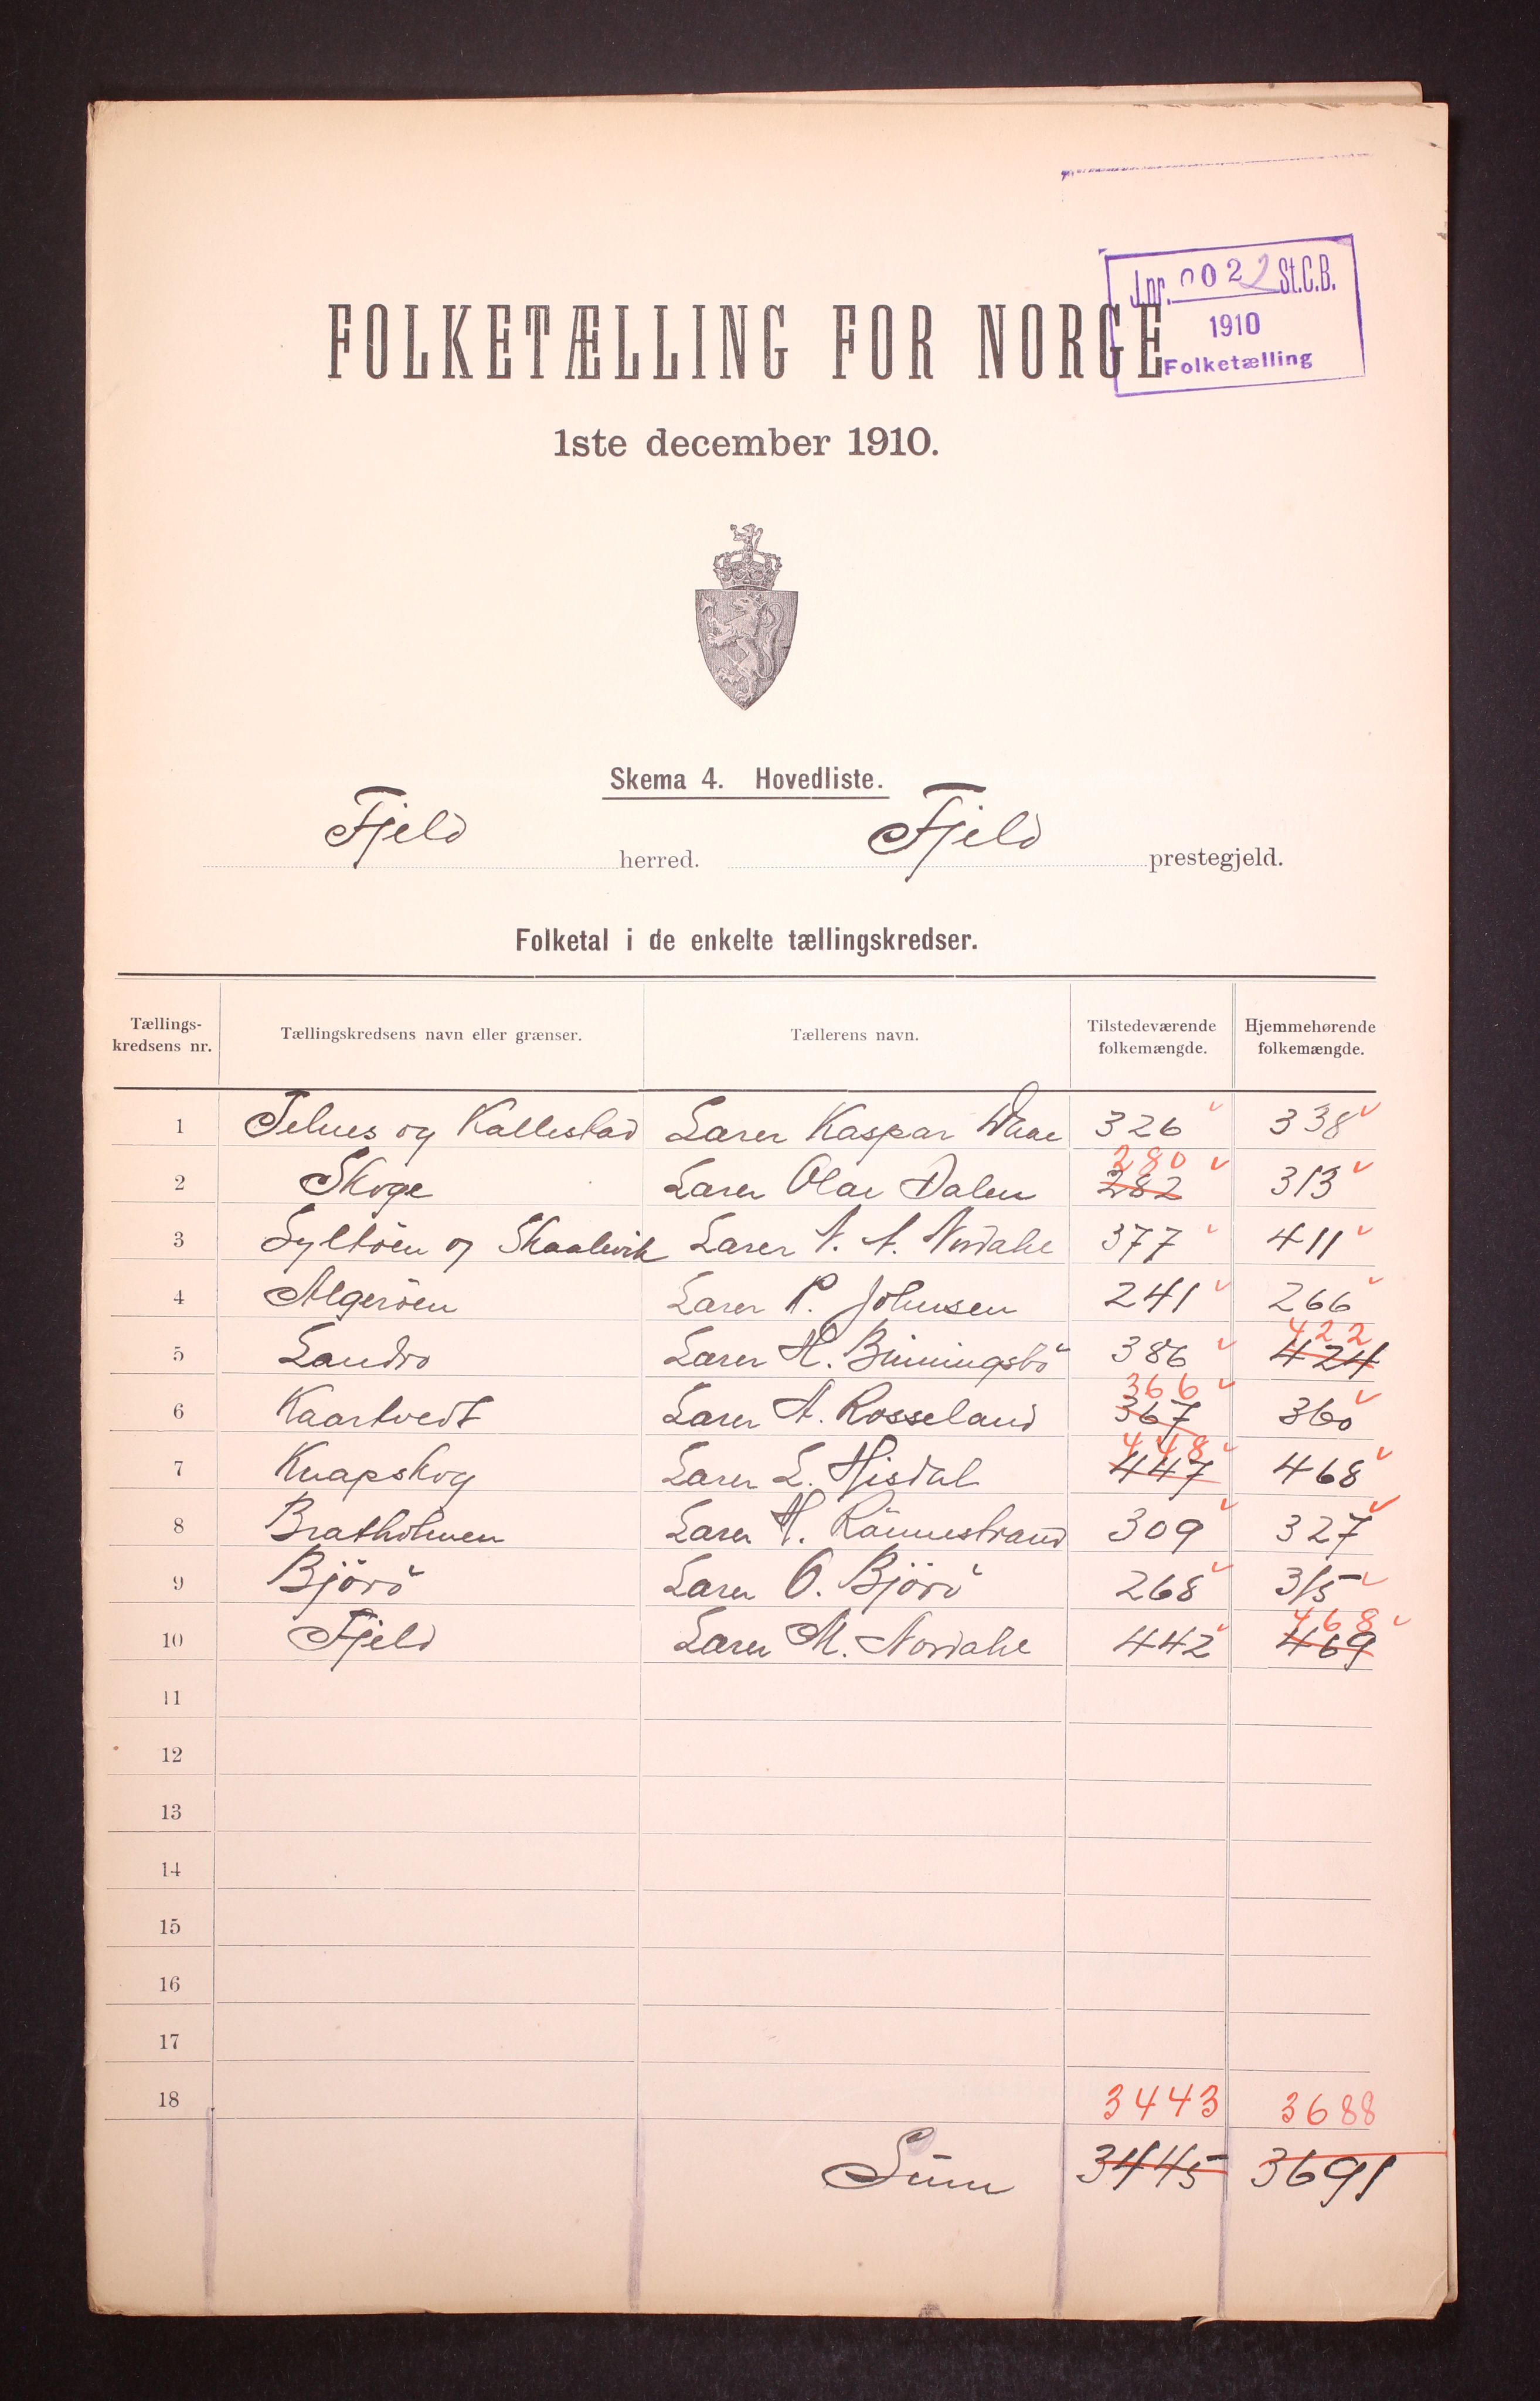 J.nr. 0022 St.C.B.
1910
Folketælling
FOLKETÆLLING FOR NORGE
1ste december 1910.
Skema 4. Hovedliste.
Fjeld herred. Fjeld prestegjeld.
Folketal i de enkelte tællingskredser.
Tællings-kredsens nr. Tællingskredsens navn eller grænser. Tællerens navn. Tilstedeværende folkemængde. Hjemmehørende folkemængde.
1 Telnes og Kallestad Lærer Kaspar 326 338
280
2 Skoge Lærer Olai Dalen 282 313
3 Syltöen og Skaalevik Lærer N. A. Nordahl 377 411
4 Algeröen Lærer P. Johnsen 241 266
422
5 Landro Lærer H. Binningsbö 386 424
366
6 Kaartvedt Lærer A. Rosseland 367 360
448
7 Knapskog Lærer L. Hisdal 447 468
8 Bratholmen Lærer H. Rönnestrand 309 327
9 Björö Lærer O. Björö 268 315
468
10 Fjeld Lærer M. Nordahl 442 469
11
12
13
14
15
16
17
18
3443 3688
Sum 3445 3691